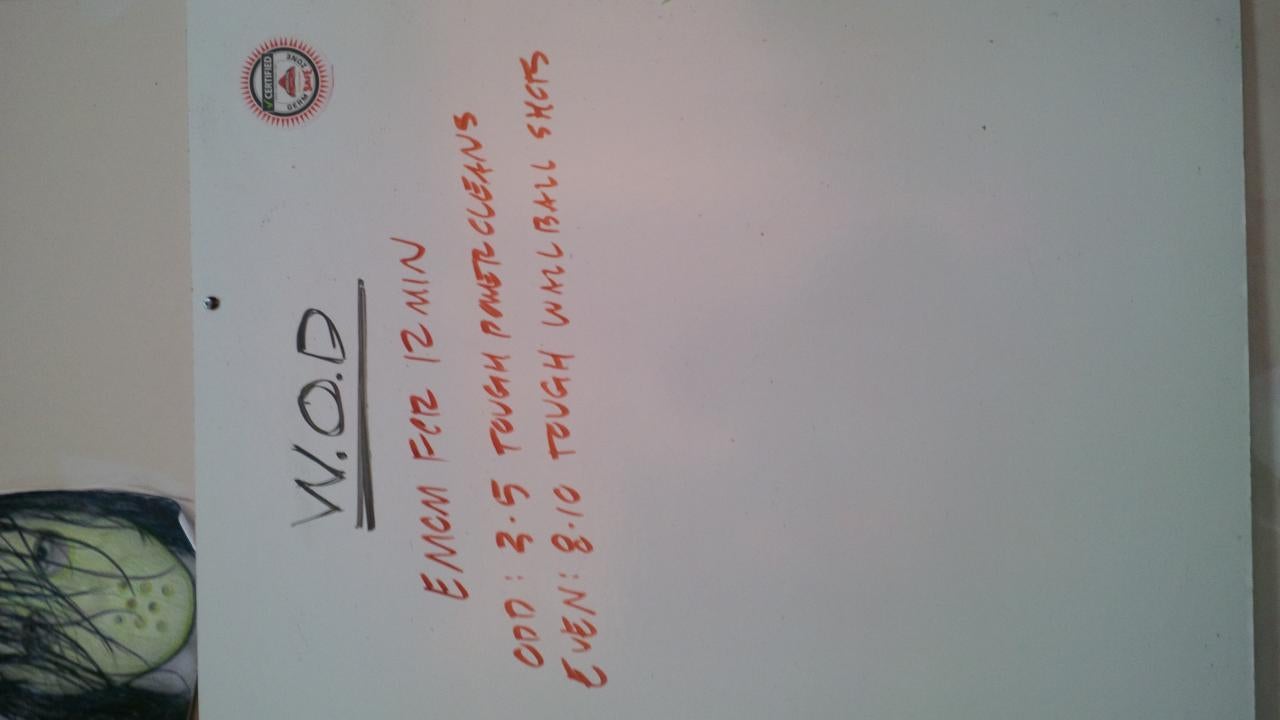 W.O.D
EMOM FOR 12 MIN
ODD: 3-5 TOUGH POWER CLEANS
EVEN: 8-10 TOUGH WALL BALL SHOTS
CERTIFIED
GERM SAFE ZONE